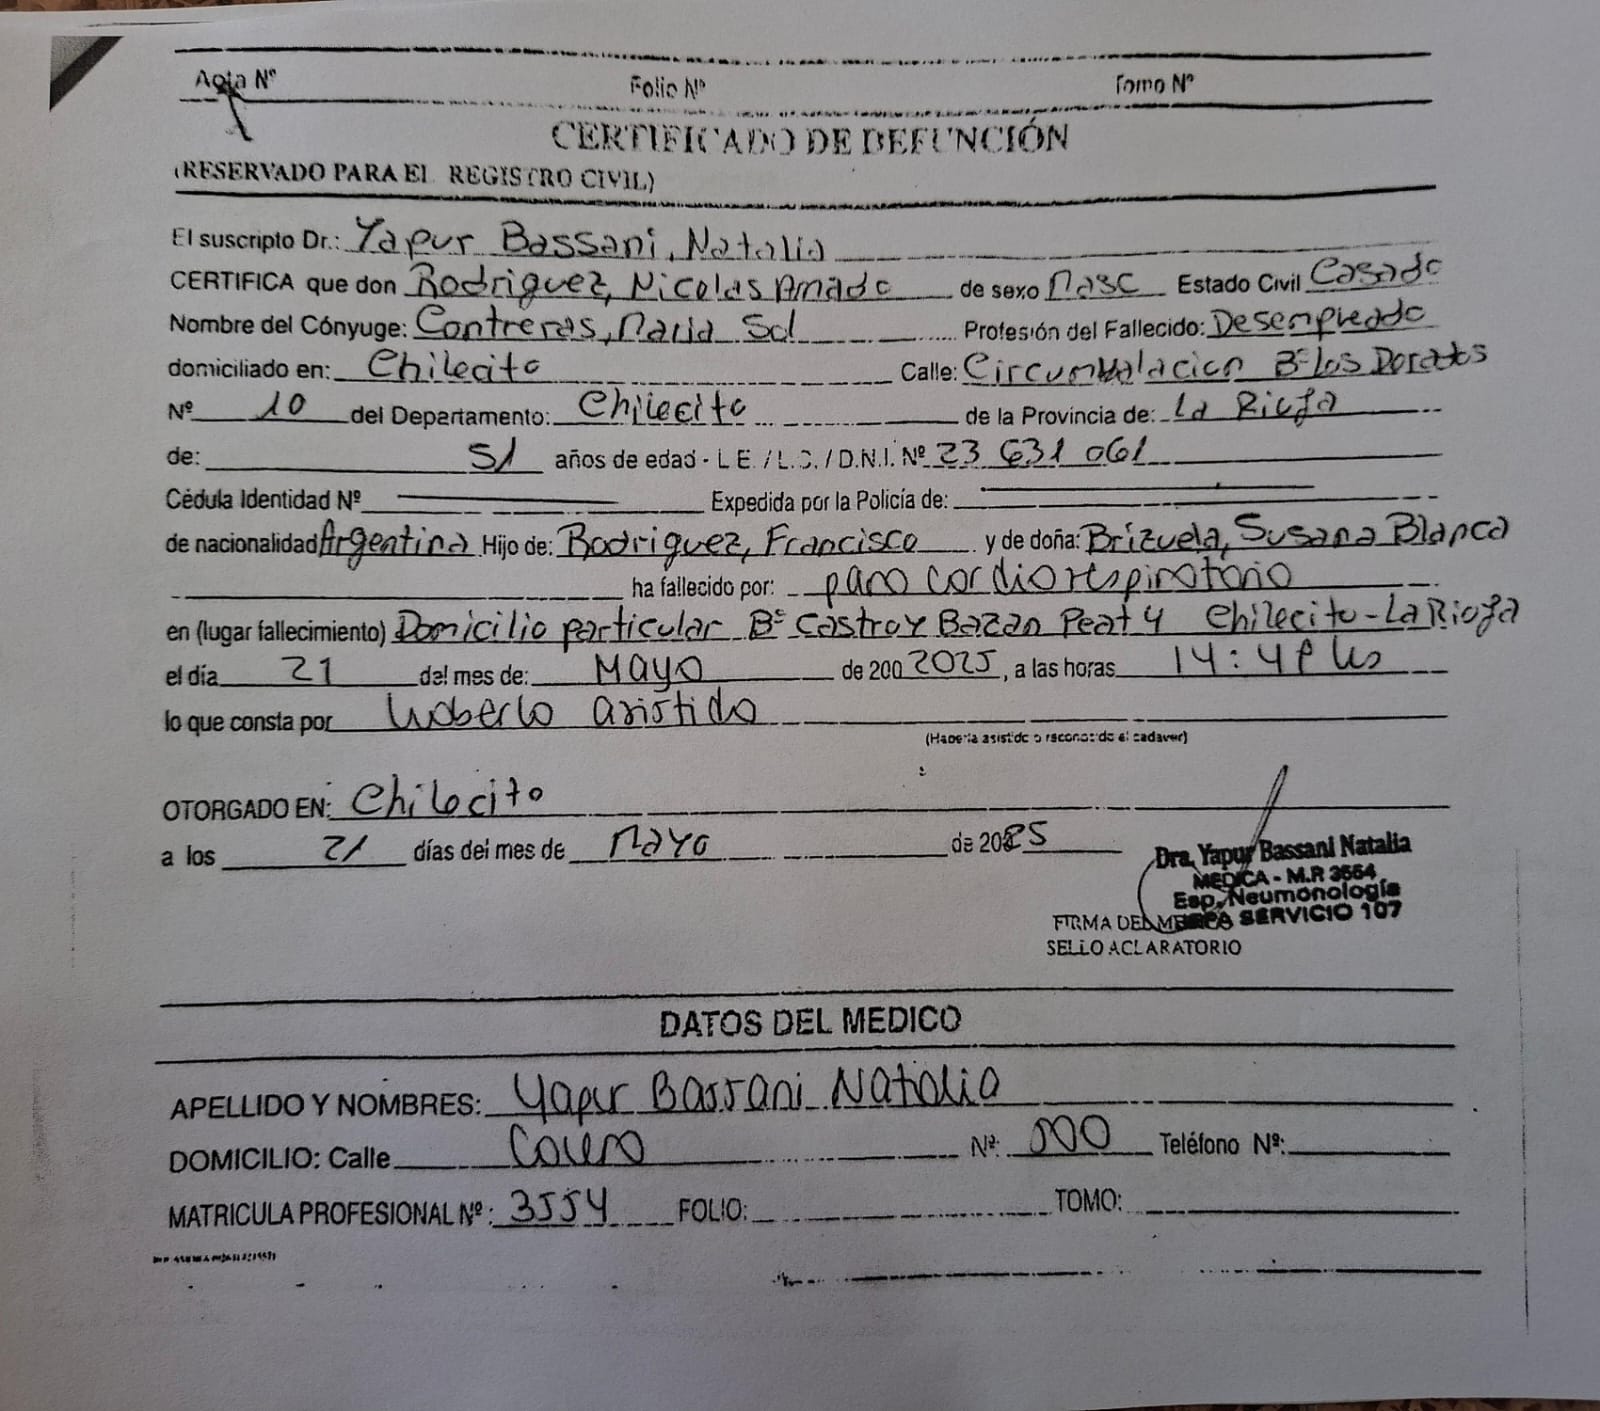 Acta Nº Folio Nº Tomo Nº
CERTIFICADO DE DEFUNCIÓN
(RESERVADO PARA EL REGISTRO CIVIL)
El suscripto Dr.: Yapur Bassani, Natalia
CERTIFICA que don Rodriguez, Nicolas Amado de sexo Masc Estado Civil Casado
Nombre del Cónyuge: Contreras, Maria Sol Profesión del Fallecido: Desempleado
domiciliado en: Chilecito Calle: Circumvalacion Bº Los Dorados
Nº 10 del Departamento: Chilecito de la Provincia de: La Rioja
de: 51 años de edad - L E. / L.C. / D.N.I. Nº 23 631 061
Cédula Identidad Nº Expedida por la Policía de:
de nacionalidad Argentina Hijo de: Rodriguez, Francisco y de doña: Brizuela, Susana Blanca
ha fallecido por: paro cardiorespiratorio
en (lugar fallecimiento) Domicilio particular Bº Castro y Bazan Peat 4 Chilecito - La Rioja
el día 21 del mes de: Mayo de 200 2025, a las horas 14:
lo que consta por haberlo asistido
(Haberla asistido o reconocido el cadaver)
OTORGADO EN: Chilecito
a los 21 días del mes de Mayo de 2025
Dra. Yapur Bassani Natalia
MEDICA - M.P 3554
Esp. Neumonología
FIRMA DEL MEDICO SERVICIO 107
SELLO ACLARATORIO
DATOS DEL MEDICO
APELLIDO Y NOMBRES: Yapur Bassani Natalia
DOMICILIO: Calle Nº: 000 Teléfono Nº:
MATRICULA PROFESIONAL Nº: 3554 FOLIO: TOMO: